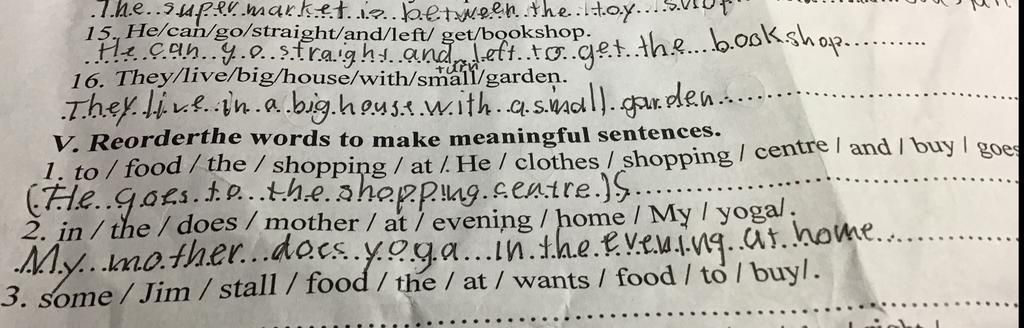 The super market is between the toy
15. He/can/go/straight/and/left/ get/bookshop.
He can go straight and turn left to get the bookshop
16. They/live/big/house/with/small/garden.
They live in a big house with a small garden
V. Reorderthe words to make meaningful sentences.
1. to / food / the / shopping / at / He / clothes / shopping / centre / and / buy / goes
(He goes to the shopping centre)
2. in / the / does / mother / at / evening / home / My / yoga/.
My mother does yoga in the evening at home
3. some / Jim / stall / food / the / at / wants / food / to / buy/.